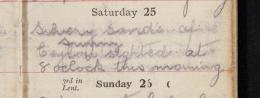 Saturday 25
Silvery Sands after
Sunny
Ceylon sighted at
8 oclock this morning
3rd in
Lent.
Sunday 26